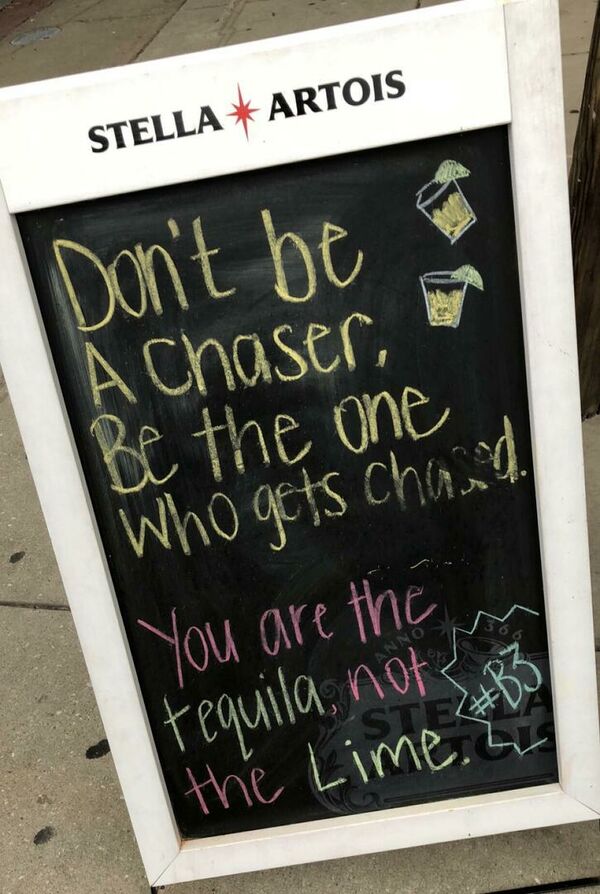 STELLA ARTOIS
Don't be
A Chaser,
Be the one
who gets chased.
You are the
tequila, not
the Lime.
#B3
ANNO 1366
STELLA
ARTOIS